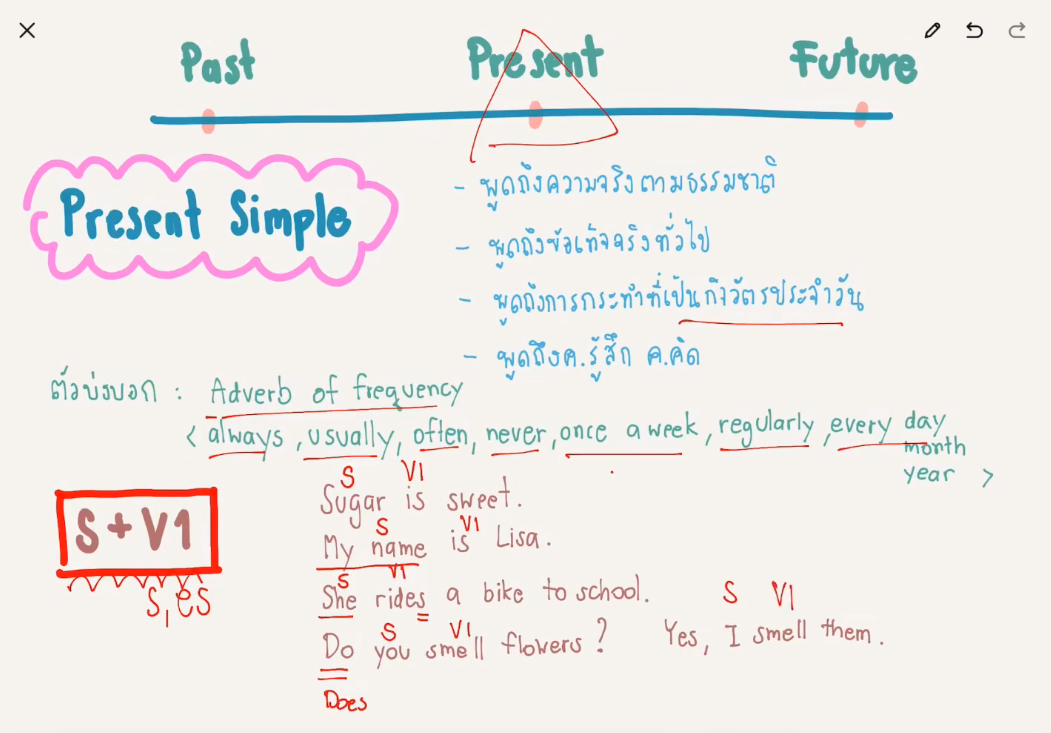 Past Present Future
Present Simple
- พูดถึงความจริงตามธรรมชาติ
- พูดถึงข้อเท็จจริงทั่วไป
- พูดถึงการกระทำที่เป็นกิจวัตรประจำวัน
- พูดถึงค.รู้สึก ค.คิด
ตัวบ่งบอก : Adverb of frequency
< always, usually, often, never, once a week, regularly, every day
month
year >
S + V1
s, es
S V1
Sugar is sweet.
S V1
My name is Lisa.
S V1
She rides a bike to school.
S V1
Do you smell flowers?
Does
S V1
Yes, I smell them.